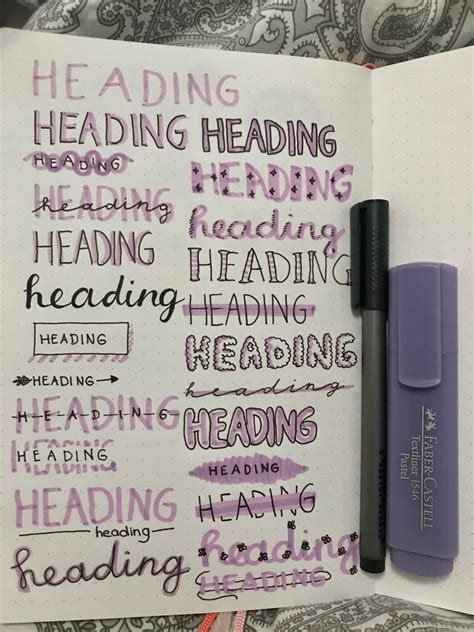 HEADING
HEADING
HEADING
HEADING
heading
HEADING
heading
HEADING
HEADING
HEADING
HEADING
HEADING
HEADING
heading
heading
HEADING
HEADING
heading
HEADING
HEADING
HEADING
heading
HEADING
HEADING
HEADING
heading
HEADING
FABER-CASTELL
Textliner 1546
Pastel